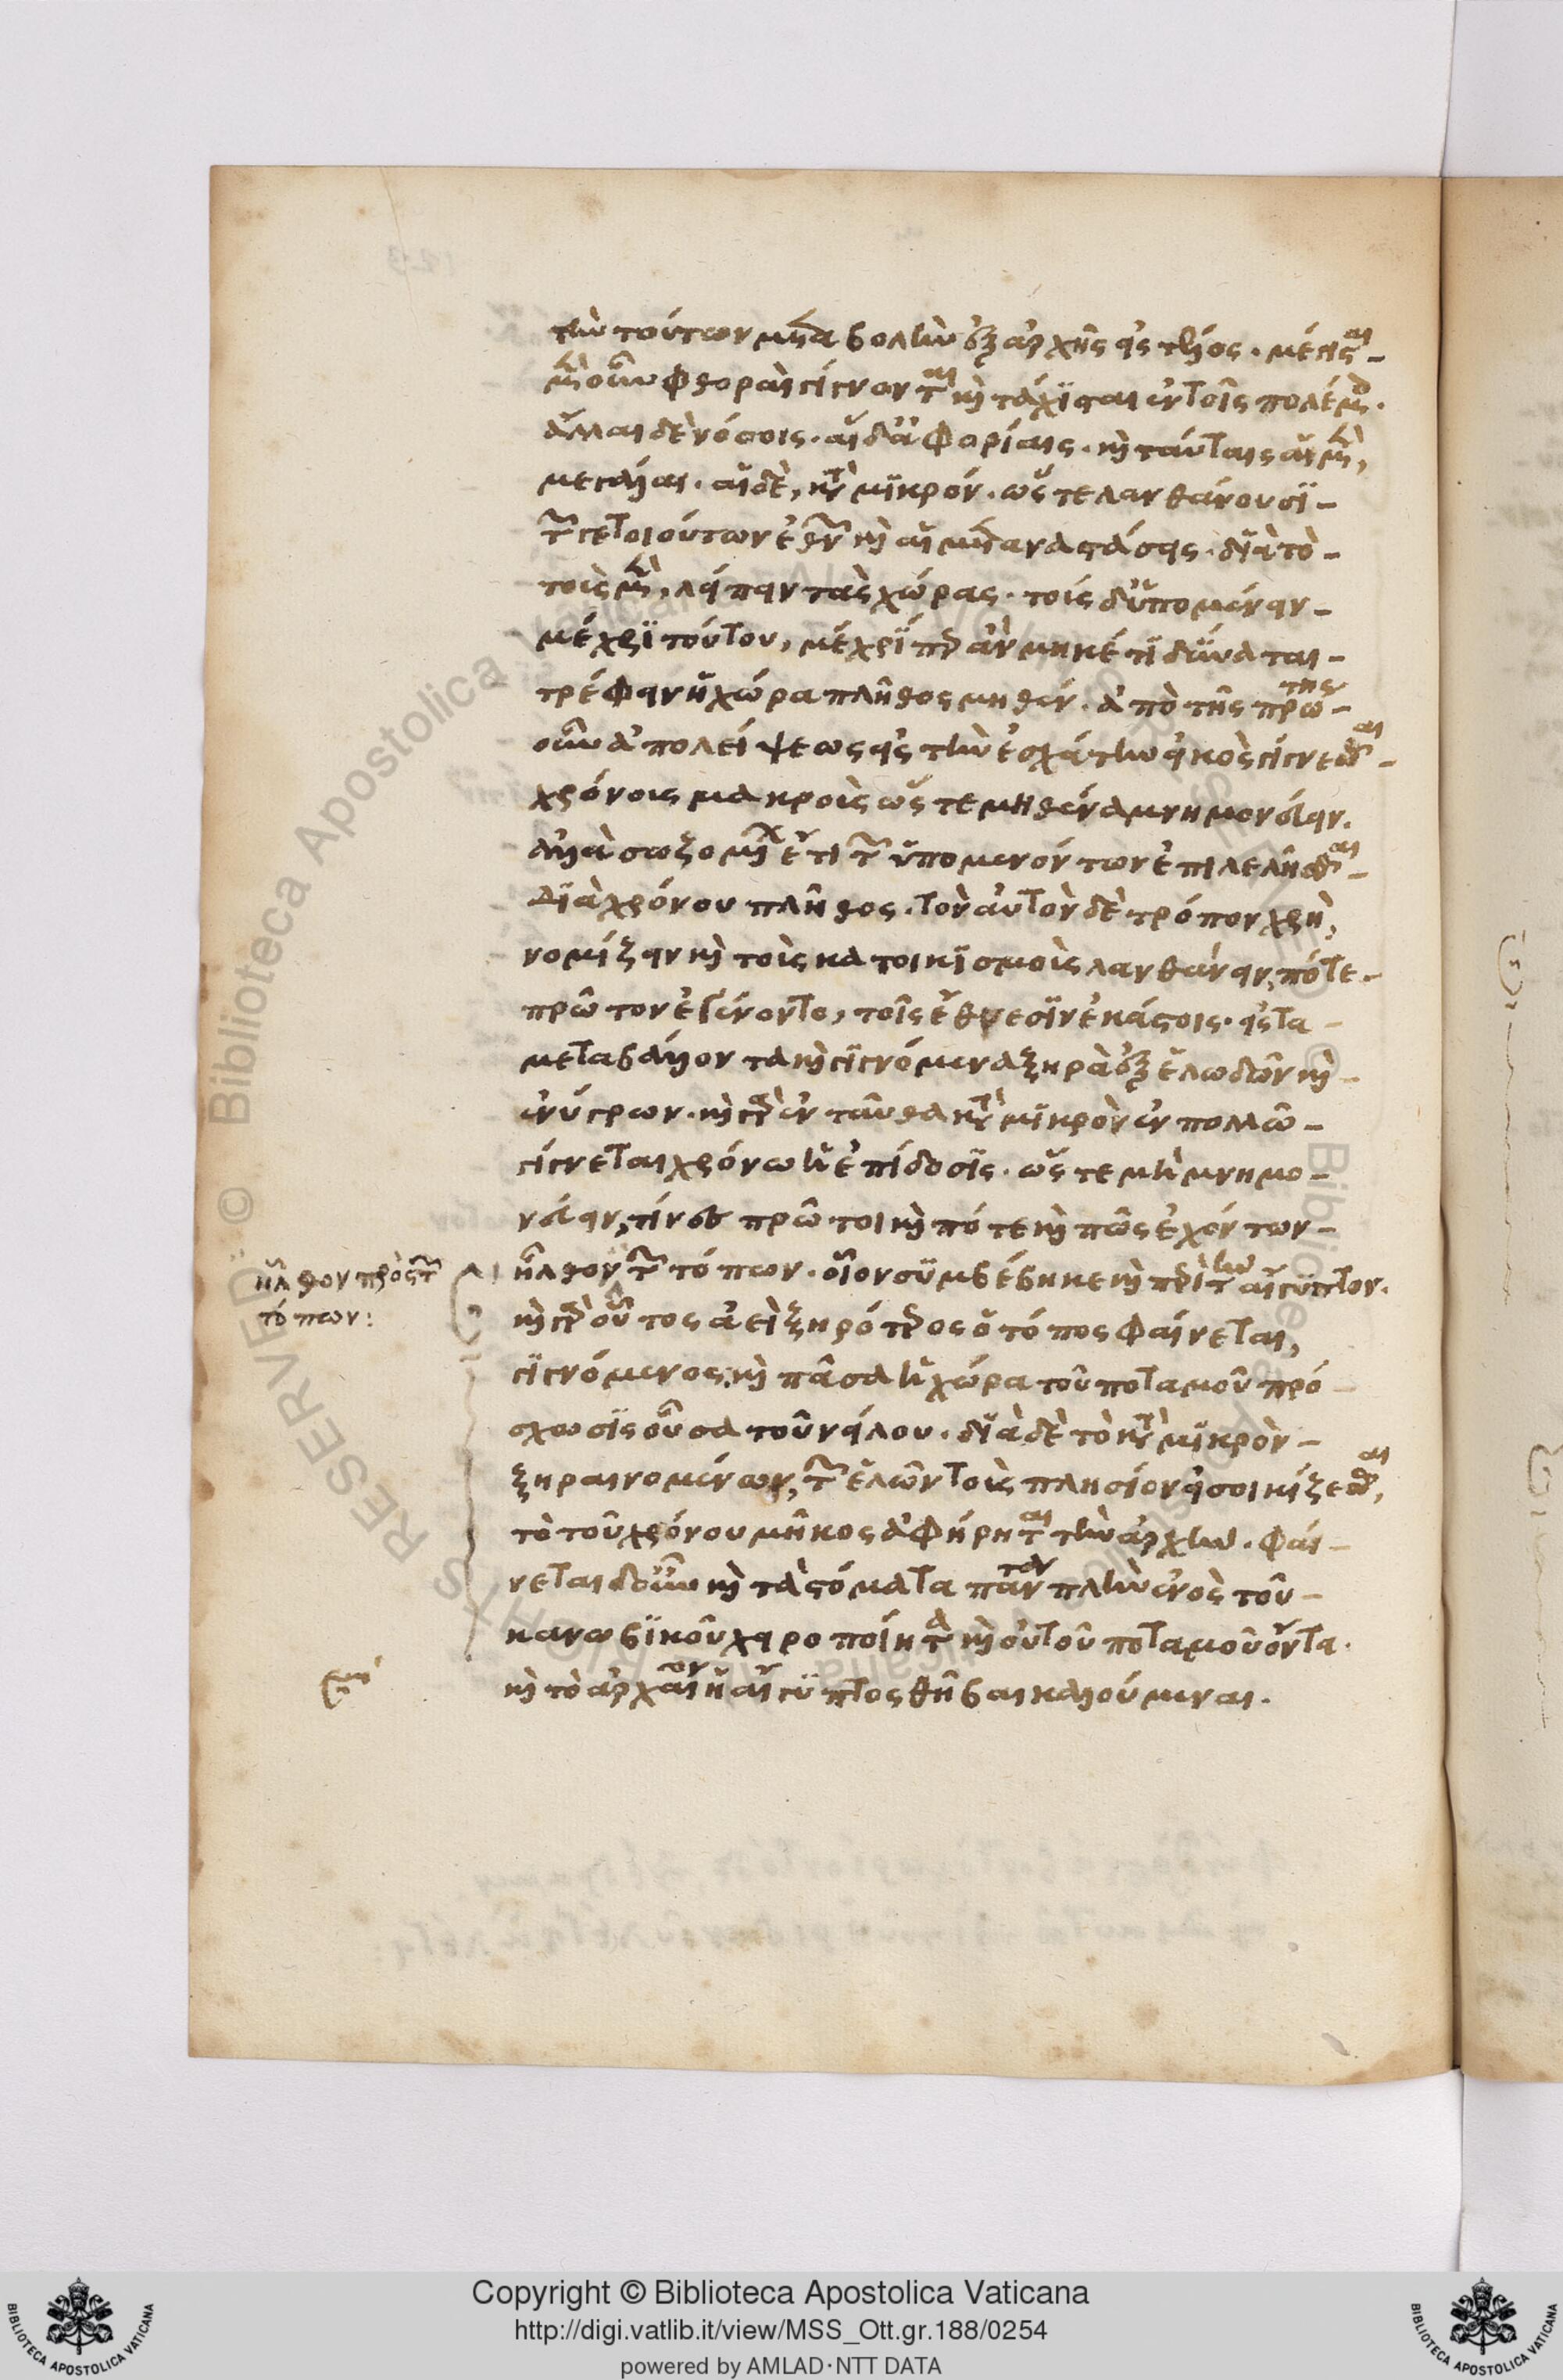 τὴν τούτων μεταβολὴν ἐξ ἀρχῆς εἰς τέλος. μέγισται
μὲν οὖν φθοραὶ γίγνονται καὶ τάχισται ἐν τοῖς πολέμοις.
ἄλλαι δὲ νόσοις. αἱ δ' ἀφορίαις. καὶ ταύταις αἱ μὲν,
μεγάλαι. αἱ δὲ, κατὰ μικρόν. ὥστε λανθάνουσι
τῶν γε τοιούτων ἐθνῶν καὶ αἱ μεταναστάσεις. διὰ τὸ
τοὺς μὲν, λείπειν τὰς χώρας. τοὺς δ' ὑπομένειν
μέχρι τούτου, μέχρι περ ἂν μηκέτι δύναται
τρέφειν ἡ χώρα πλῆθος μηθέν. ἀπὸ τῆς πρώτης
οὖν ἀπολείψεως εἰς τὴν ἐσχάτην εἰκὸς γίγνεσθαι
χρόνους μακροὺς ὥστε μηθένα μνημονεύειν.
ἀλλὰ σωζομένων ἔτι τῶν ὑπομενόντων ἐπιλελῆσθαι
διὰ χρόνου πλῆθος. τὸν αὐτὸν δὲ τρόπον χρὴ,
νομίζειν καὶ τοὺς κατοικισμοὺς λανθάνειν, πότε
πρῶτον ἐγένοντο, τοῖς ἔθνεσιν ἑκάστοις. εἰς τὰ
μεταβάλλοντα καὶ γιγνόμενα ξηρὰ ἐξ ἑλωδῶν καὶ
ἐνύγρων. καὶ γὰρ ἐνταῦθα κατὰ μικρὸν ἐν πολλῶ
γίγνεται χρόνω ἡ ἐπίδοσις. ὥστε μὴ μνημο
νεύειν, τίνες πρῶτοι καὶ πότε καὶ πῶς ἐχόντων
ἦλθον τῶν τόπων. οἷον συμβέβηκε καὶ περὶ τὴν αἴγυπτον.
ἦλθον πρὸς τῶν
τόπων:
καὶ γὰρ οὗτος ἀεὶ ξηρότερος ὁ τόπος φαίνεται,
γιγνόμενος, καὶ πᾶσα ἡ χώρα τοῦ ποταμοῦ πρό
σχωσις οὖσα τοῦ νείλου. διὰ δὲ τὸ κατὰ μικρὸν
ξηραινομένων, τῶν ἑλῶν τοὺς πλησίον εἰσοικίζεσθαι,
τὸ τοῦ χρόνου μῆκος ἀφήρηται τὴν ἀρχήν. φαί
νεται δ' οὖν καὶ τὰ στόματα πάντα πλὴν ἑνὸς τοῦ
κανωβικοῦ χειροποίητα καὶ οὐ τοῦ ποταμοῦ ὄντα.
καὶ τὸ ἀρχαῖον ἡ αἴγυπτος θῆβαι καλούμεναι.
Copyright © Biblioteca Apostolica Vaticana
http://digi.vatlib.it/view/MSS_Ott.gr.188/0254
powered by AMLAD·NTT DATA
BIBLIOTECA APOSTOLICA VATICANA
BIBLIOTECA APOSTOLICA VATICANA